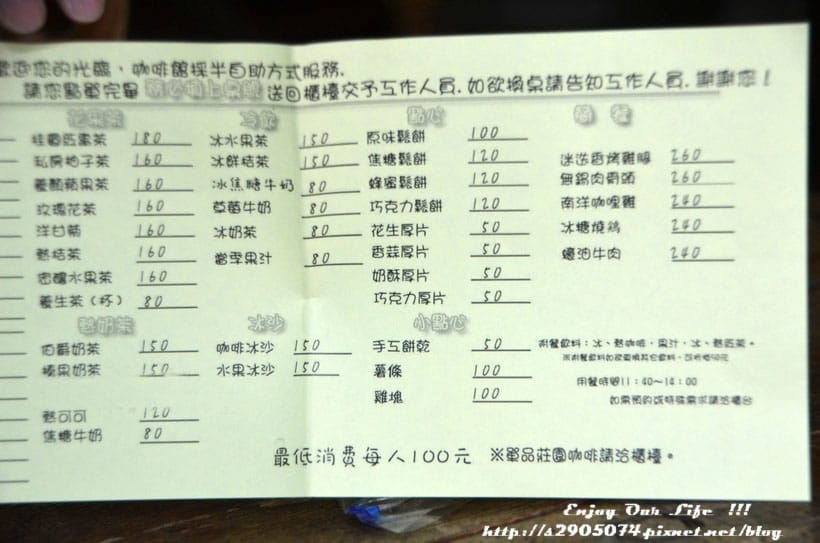 歡迎您的光臨，咖啡館採半自助方式服務.
請您點單完畢 請必填上桌號 送回櫃檯交予工作人員.如欲換桌請告知工作人員.謝謝您！
花果茶
桂圓紅棗茶 180
私房柚子茶 160
養顏蘋果茶 160
玫瑰花茶 160
洋甘菊 160
熱桔茶 160
密釀水果茶 160
養生茶（杯） 80
熱奶茶
伯爵奶茶 150
榛果奶茶 150
熱可可 120
焦糖牛奶 80
冷飲
冰水果茶 150
冰鮮桔茶 150
冰焦糖牛奶 80
草莓牛奶 80
冰奶茶 80
當季果汁 80
冰沙
咖啡冰沙 150
水果冰沙 150
點心
原味鬆餅 100
焦糖鬆餅 120
蜂蜜鬆餅 120
巧克力鬆餅 120
花生厚片 50
香蒜厚片 50
奶酥厚片 50
巧克力厚片 50
小點心
手工餅乾 50
薯條 100
雞塊 100
簡餐
迷迭香烤雞腿 260
無錫肉骨頭 260
南洋咖哩雞 240
冰糖燒鴿 240
蠔油牛肉 240
附餐飲料：冰、熱咖啡，果汁，冰、熱紅茶。
※附餐飲料如欲更換其它飲料，可折抵50元
用餐時間11：40~14：00
如需預約或特殊需求請洽櫃台
最低消費每人100元 ※單品莊園咖啡請洽櫃檯。
Enjoy Our Life !!!
http://s2905074.pixnet.net/blog